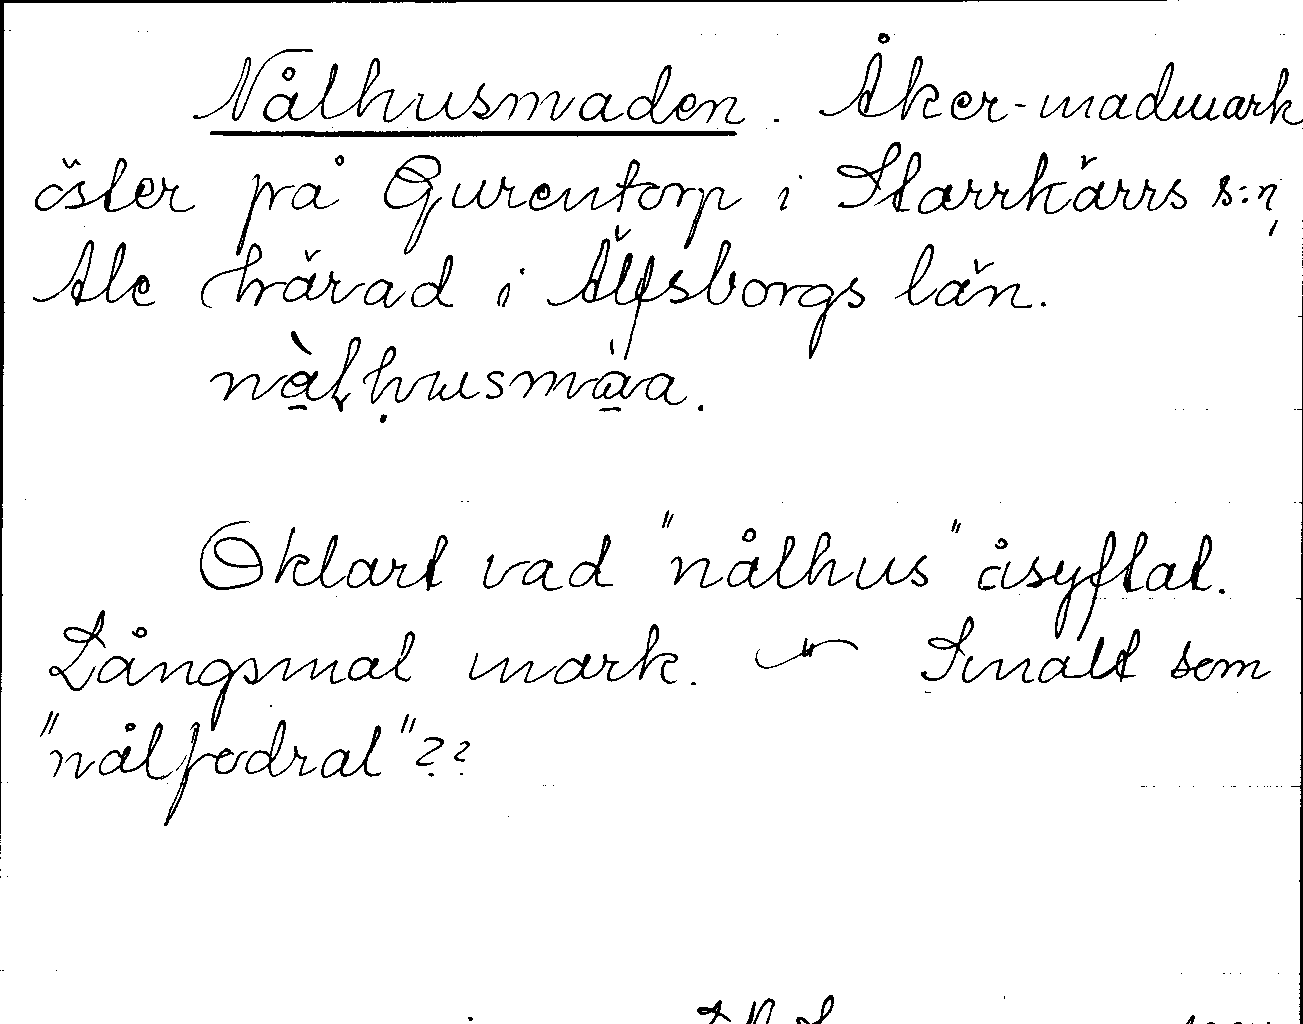 Nålhusmaden. Åker-madmark
öster på Gurentorp i Starrkärrs s:n,
Ale härad i Älfsborgs län.
nàlhusmáa.
Oklart vad "nålhus" åsyftat.
Långsmal mark. — " — Smalt som
"nålfodral"??